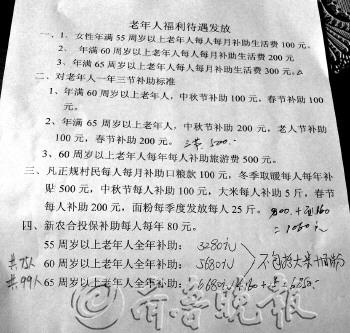 老年人福利待遇发放
一、1. 女性年满 55 周岁以上老年人每人每月补助生活费 100 元。
2. 年满 60 周岁以上老年人每人每月补助生活费 200 元
3. 年满 65 周岁以上老年人每人每月补助生活费 300 元。
二、对老年人一年三节补助标准
1、年满 60 周岁以上老年人，中秋节补助 100 元，春节补助 100 元。
2、年满 65 周岁以上老年人，中秋节补助 200 元，老人节补助 100 元，春节补助 200 元。
3、60 周岁以上老年人每年每人补助旅游费 500 元。
三、凡正规村民每人每月补助口粮款 100 元，冬季取暖每人每年补
贴 500 元，中秋节每人补助 100 元，大米每人补助 5 斤，春节
每人补助 200 元，面粉每季度发放每人 25 斤。
四、新农合投保补助每人每年 80 元。
55 周岁以上老年人全年补助： 3280元
60 周岁以上老年人全年补助： 5680元 不包括大米+面粉
65 周岁以上老年人全年补助： 6680元
齐鲁晚报